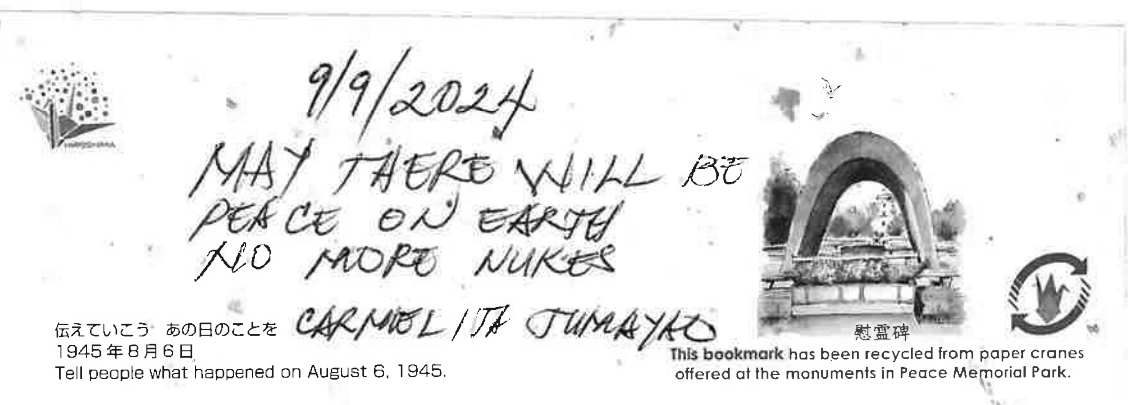 HIROSHIMA
9/9/2024
MAY THERE WILL BE
PEACE ON EARTH
NO MORE NUKES
CARMELITA JUMAYAO
伝えていこう あの日のことを
1945年8月6日
Tell people what happened on August 6, 1945.
慰霊碑
This bookmark has been recycled from paper cranes
offered at the monuments in Peace Memorial Park.